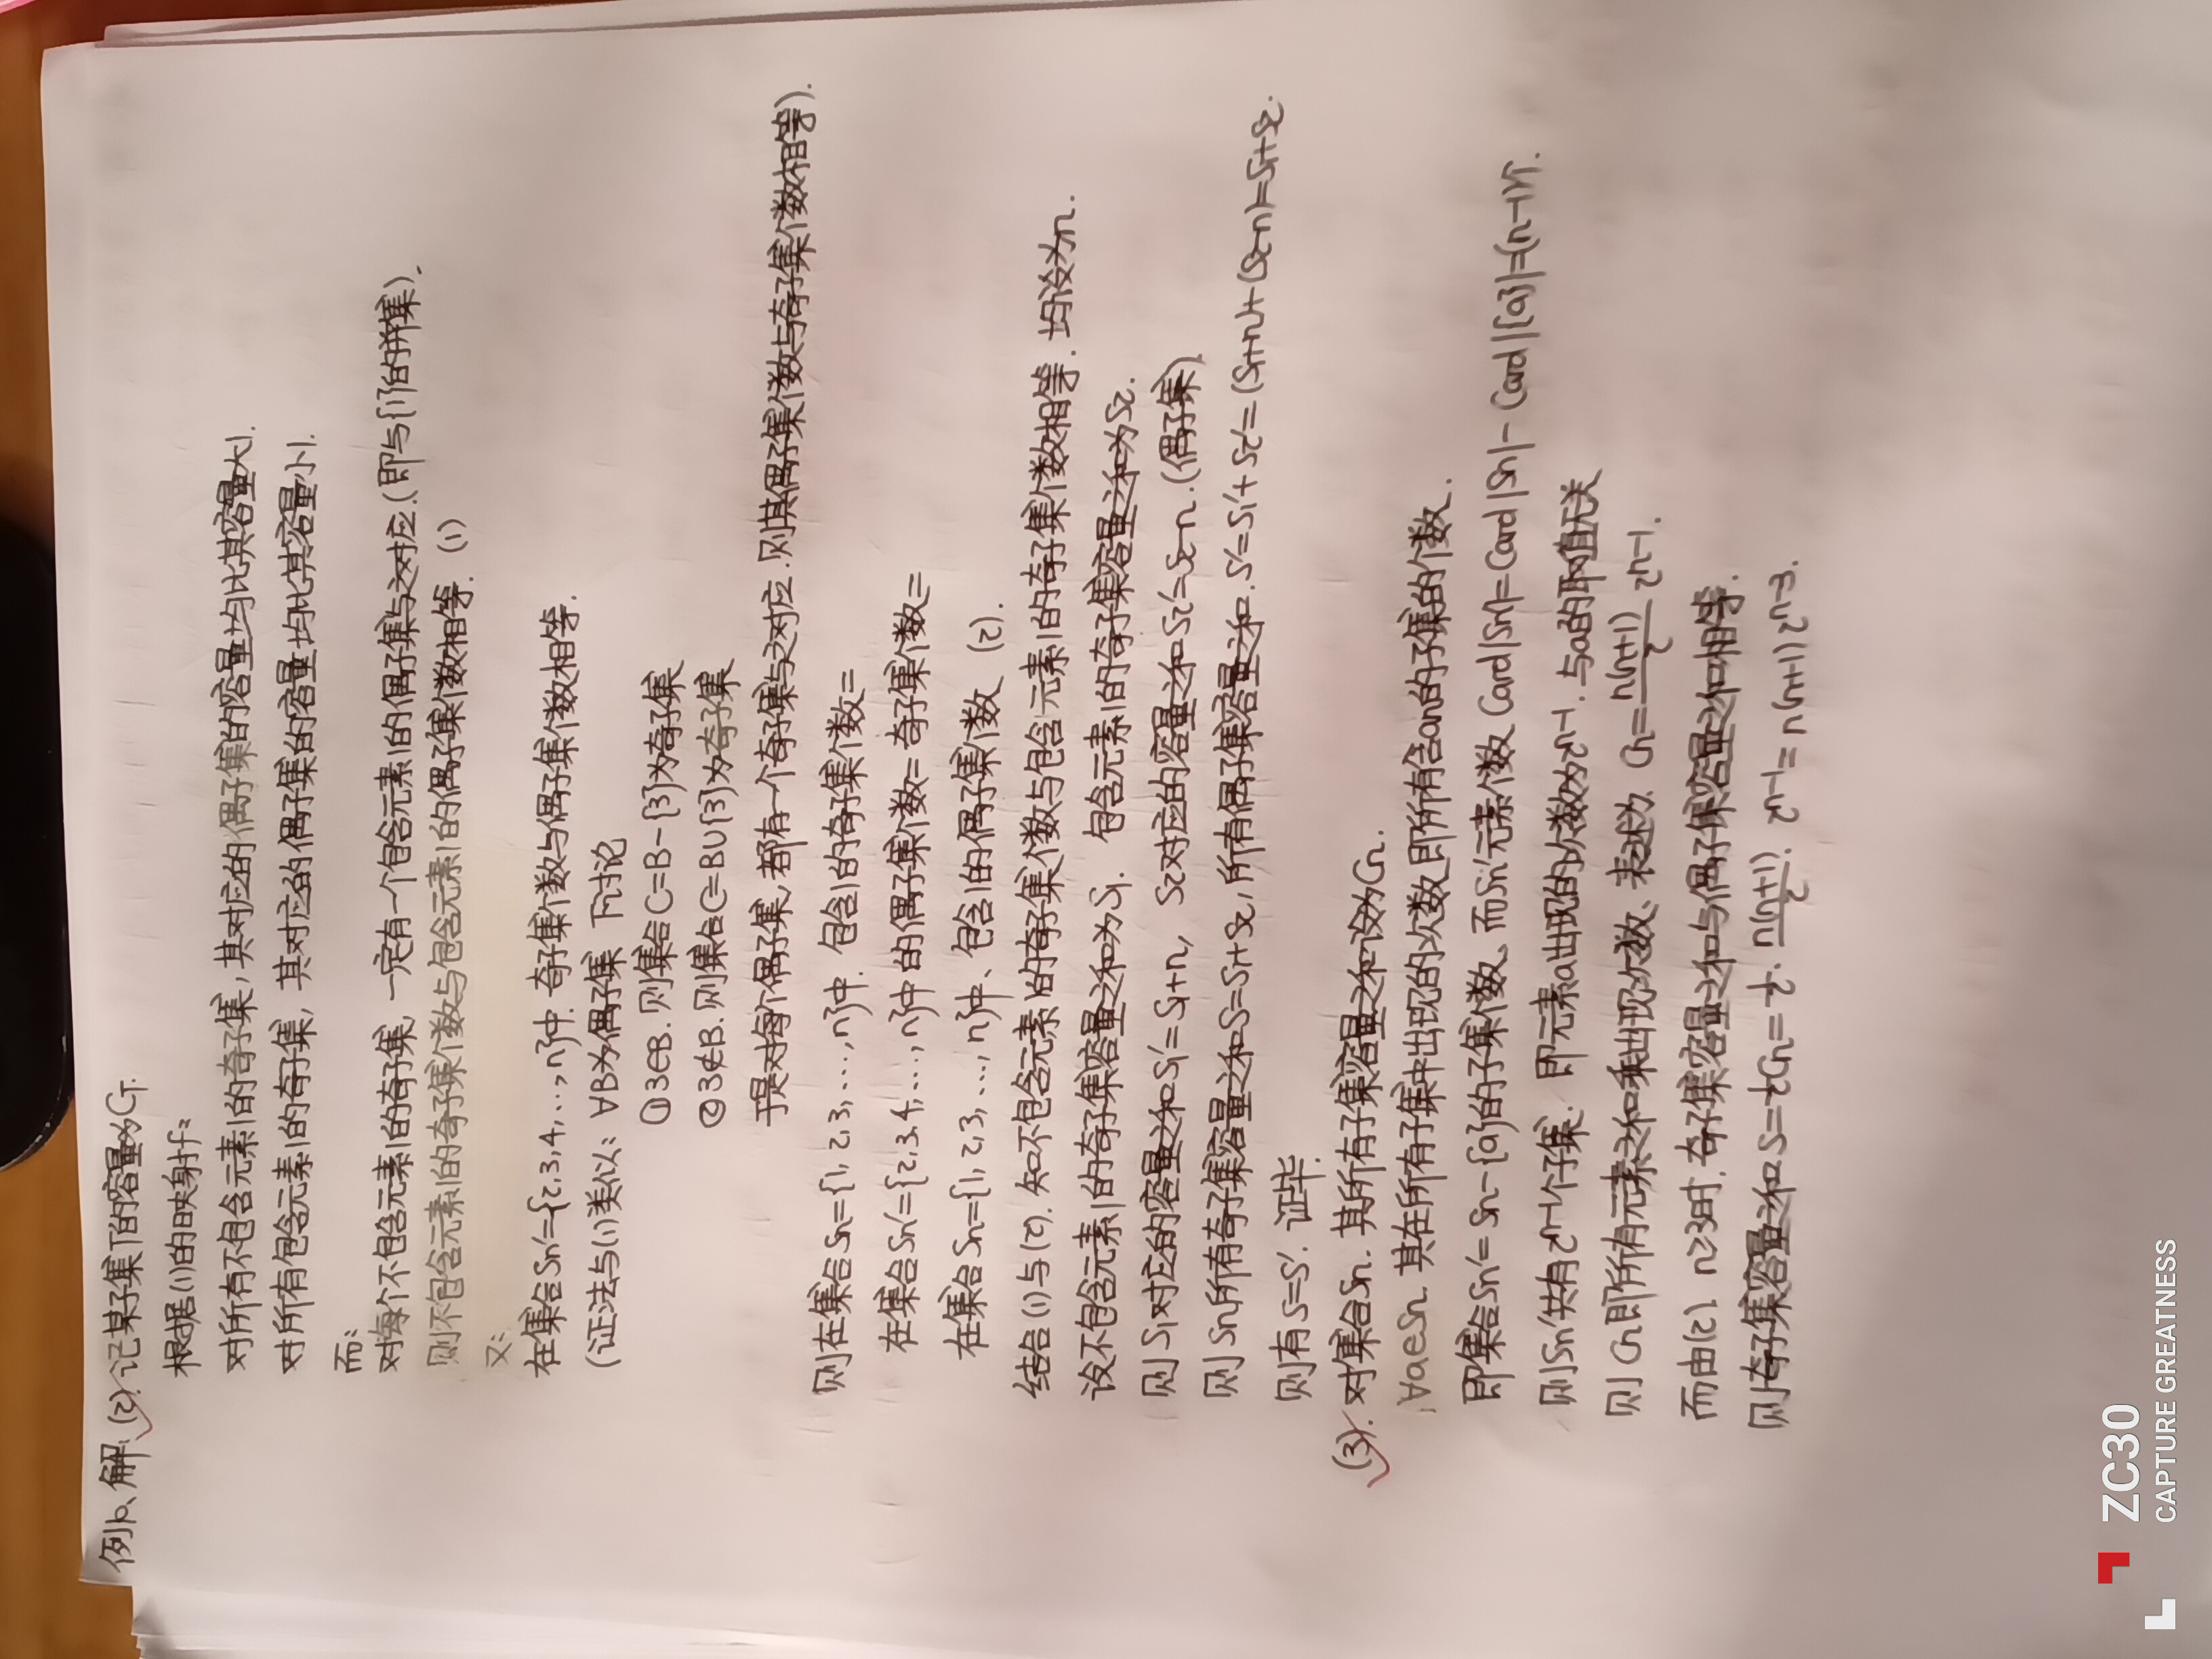 例10.解:(2).记某子集T的容量为CT.
根据(1)的映射f:
对所有不包含元素1的奇子集,其对应的偶子集的容量均比其容量大1.
对所有包含元素1的奇子集,其对应的偶子集的容量均比其容量小1.
而:
对每个不包含元素1的奇子集,一定有一个包含元素1的偶子集与之对应.(即与{1}的并集).
则不包含元素1的奇子集个数与包含元素1的偶子集个数相等. (1)
又:
在集合Sn'={2,3,4,…,n}中.奇子集个数与偶子集个数相等.
(证法与(1)类似: ∀B为偶子集 下讨论
①3∈B.则集合C=B-{3}为奇子集
②3∉B.则集合C=B∪{3}为奇子集
于是对每个偶子集,都有一个奇子集与之对应.则其偶子集个数与奇子集个数相等).
则在集合Sn={1,2,3,…,n}中.包含1的奇子集个数=
在集合Sn'={2,3,4,…,n}中的偶子集个数=奇子集个数=
在集合Sn={1,2,3,…,n}中、包含1的偶子集个数 (2).
结合(1)与(2).知不包含元素1的奇子集个数与包含元素1的奇子集个数相等.均设为n.
设不包含元素1的奇子集容量之和为S1. 包含元素1的奇子集容量之和为S2.
则S1对应的容量之和S1'=S1+n, S2对应的容量之和S2'=S2-n.(偶子集)
则Sn所有奇子集容量之和S=S1+S2,所有偶子集容量之和.S'=S1'+S2'=(S1+n)+(S2-n)=S1+S2.
则有S=S'.证毕.
(3).对集合Sn.其所有子集容量之和设为Cn.
∀a∈Sn.其在所有子集中出现的次数即所有含an的子集的个数.
即集合Sn'=Sn-{a}的子集个数、而Sn'元素个数Card|Sn'|=Card|Sn|-Card|{a}|=(n-1)个.
则Sn'共有2^{n-1}个子集.即元素a出现的次数为2^{n-1}.与a的取值无关
则Cn即所有元素之和乘出现次数、表述为.Cn=\frac{n(n+1)}{2}2^{n-1}.
而由(2).n≥3时.奇子集容量之和与偶子集容量之和相等.
则奇子集容量之和S=\frac{1}{2}Cn=\frac{1}{2}·\frac{n(n+1)}{2}·2^{n-1}=n(n+1)2^{n-3}.
ZC30
CAPTURE GREATNESS